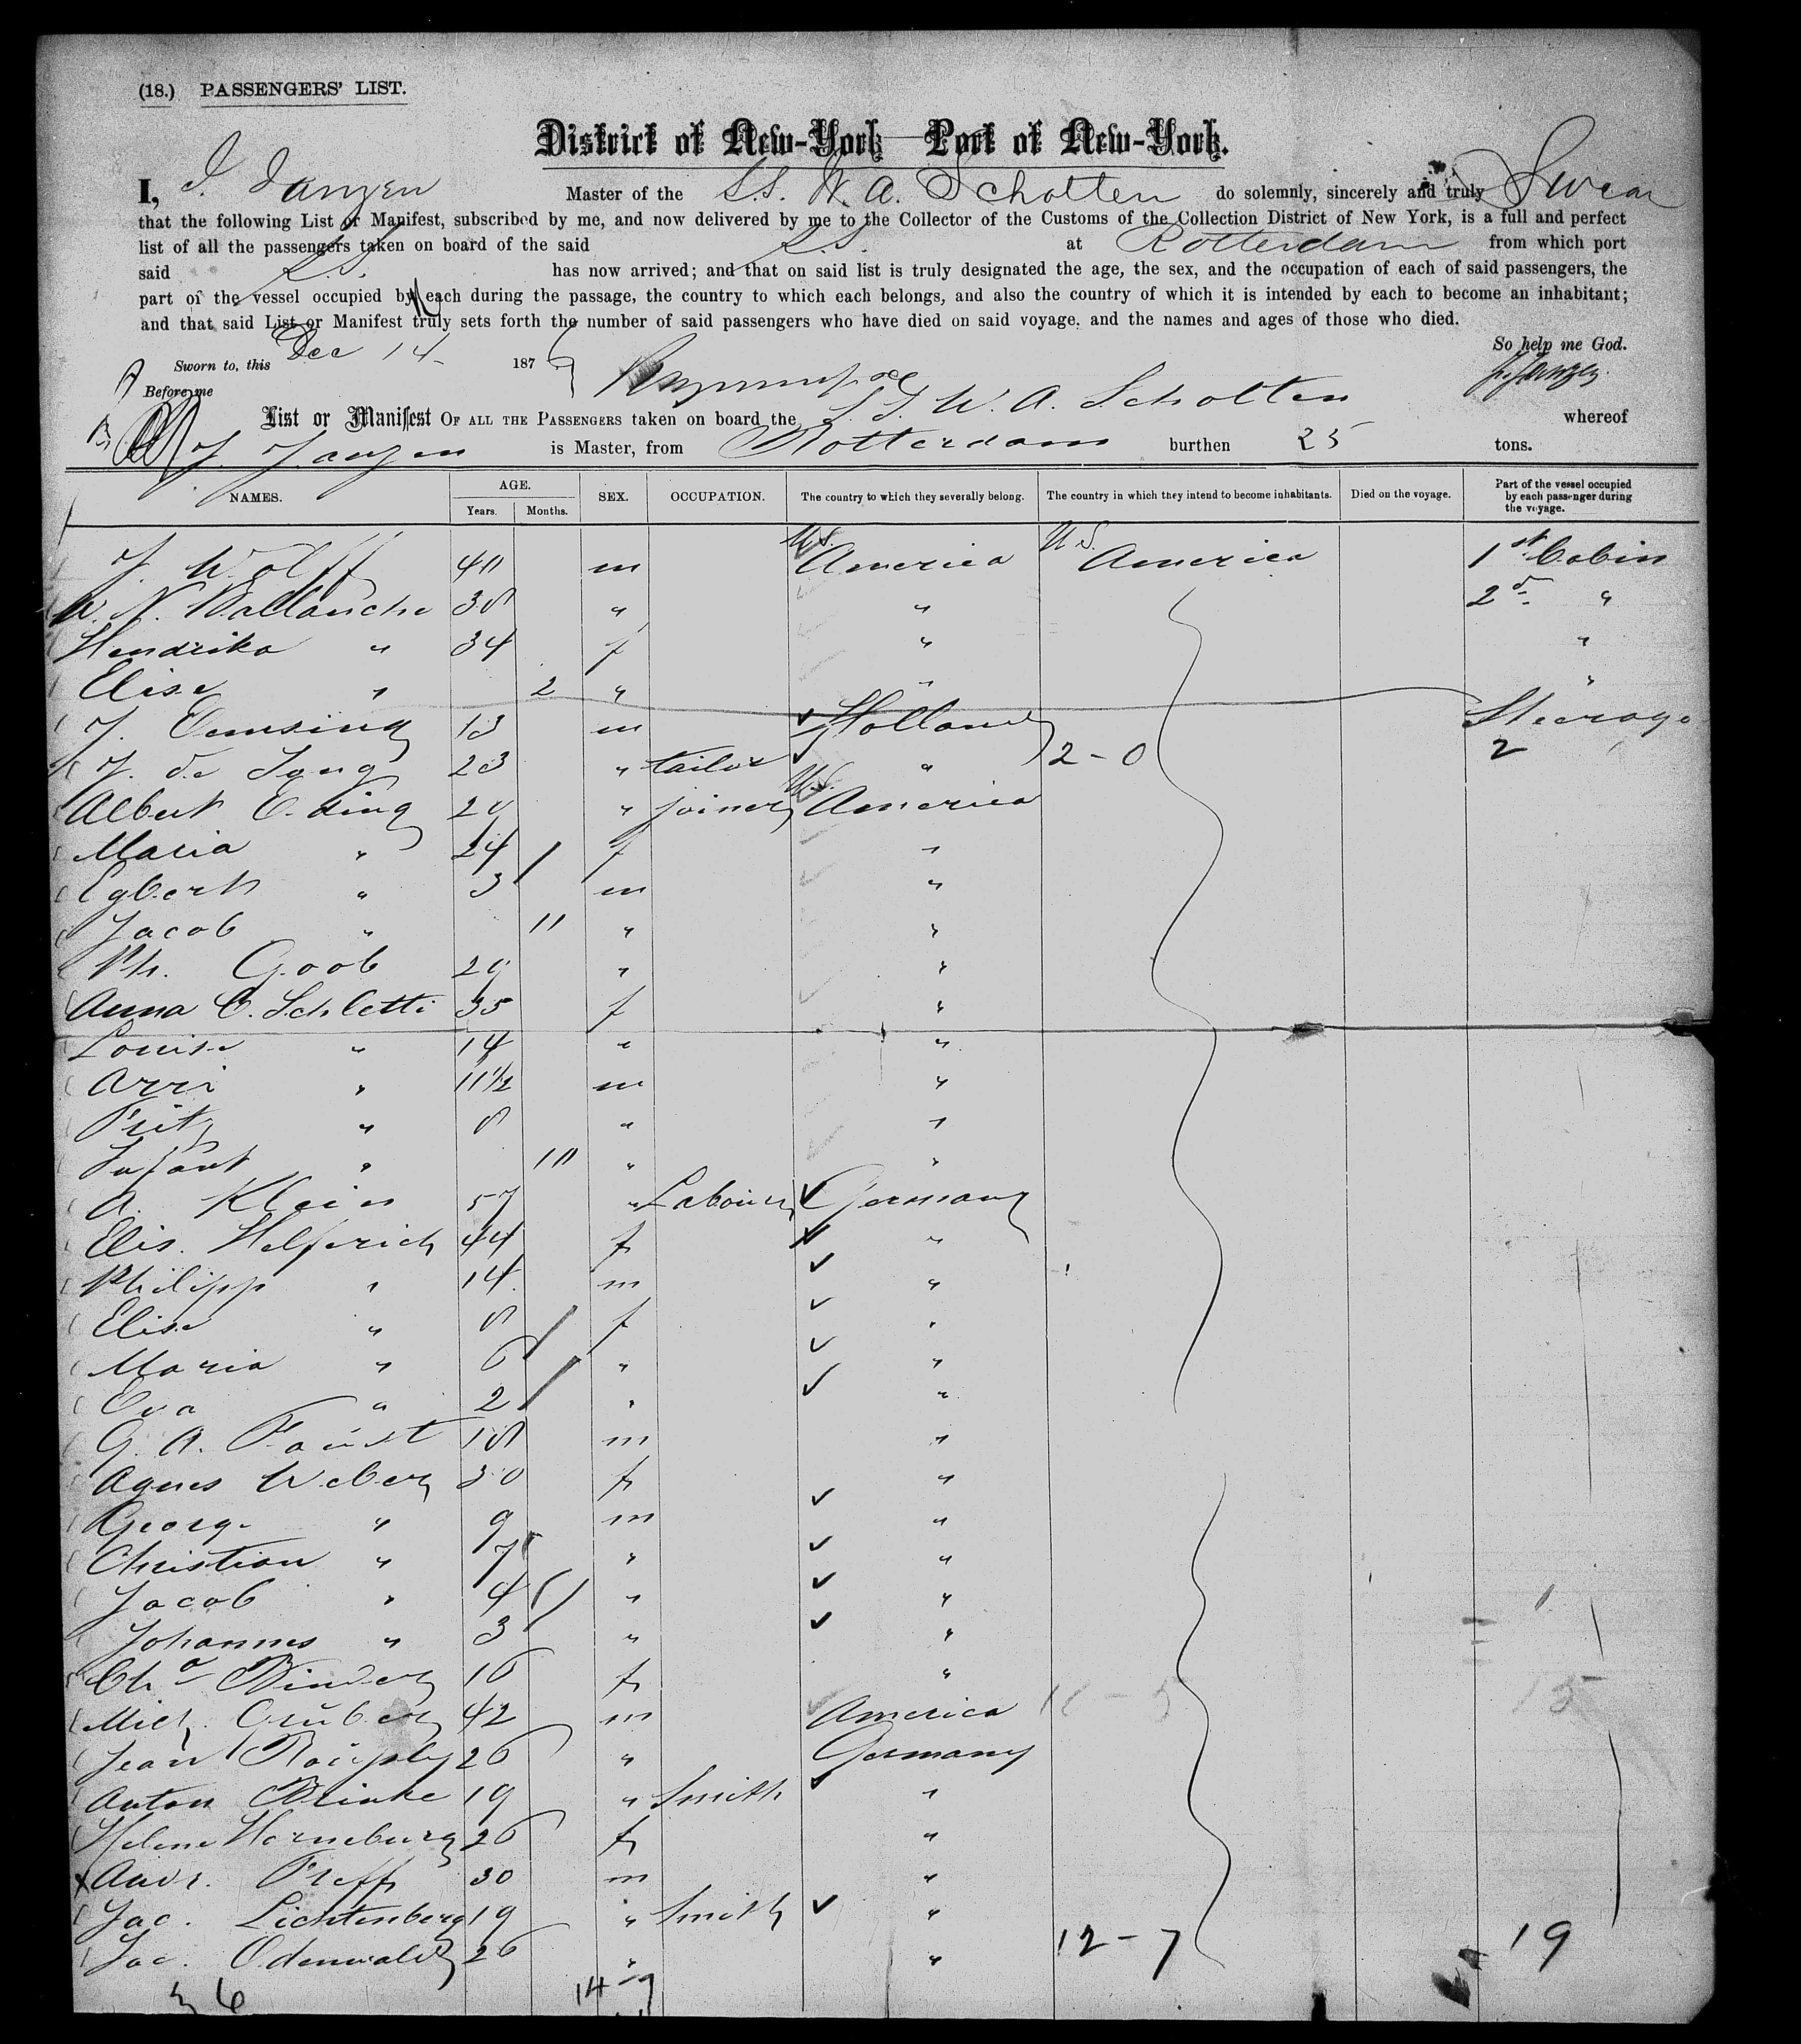 (18.) PASSENGERS' LIST.
District of New-York Port of New-York.
I, J. Janzen Master of the S.S. W. A. Scholten do solemnly, sincerely and truly Swear
that the following List or Manifest, subscribed by me, and now delivered by me to the Collector of the Customs of the Collection District of New York, is a full and perfect
list of all the passengers taken on board of the said S.S. at Rotterdam from which port
said S.S. has now arrived; and that on said list is truly designated the age, the sex, and the occupation of each of said passengers, the
part of the vessel occupied by each during the passage, the country to which each belongs, and also the country of which it is intended by each to become an inhabitant;
and that said List or Manifest truly sets forth the number of said passengers who have died on said voyage, and the names and ages of those who died.
So help me God.
Sworn to, this Dec 14 1876
Before me
List or Manifest OF ALL THE PASSENGERS taken on board the S S W. A. Scholten whereof
J. Janzen is Master, from Rotterdam burthen 25 tons.
NAMES. AGE. Years. Months. SEX. OCCUPATION. The country to which they severally belong. The country in which they intend to become inhabitants. Died on the voyage. Part of the vessel occupied by each passenger during the voyage.
J. Wolff 40 m U.S. America U.S. America 1st Cabin
W. N. Ballauche 38 " " 2d "
Hendrika " 34 f " "
Elise " 2 " " "
J. Oemsing 13 m Holland Steerage
J. de Jong 23 " tailor " 2-0 2
Albert Eding 28 " joiner U.S. America
Maria " 24 f "
Egbert " 3 m "
Jacob " 11 " "
Ph. Goob 29 " "
Anna C. Schletti 35 f "
Louise " 14 " "
Arri " 11 1/2 m "
Fritz " 8 " "
Infant " 10 " "
A. Klein 57 " Labourer Germany
Elis. Helferich 44 f "
Philipp " 14 m "
Elise " 8 f "
Maria " 6 " "
Eva " 2 " "
G. A. Faust 18 m "
Agnes Weber 30 f "
George " 9 m "
Christian " 7 " "
Jacob " 4 " "
Johannes " 3 " "
Cha Binder 16 f "
Mich. Gruber 42 m America
Jean 26 " Germany
Anton Brinke 19 " Smith "
Helene Horneburg 26 f "
Andr. Treff 30 m "
Jac. Lichtenberg 19 " Smith "
Jac. Odenwald 26 " " 12-7 19
36 14-9